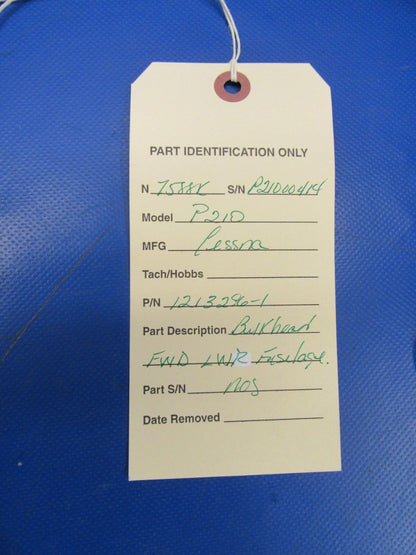 PART IDENTIFICATION ONLY
N 7588K S/N P21000414
Model P210
MFG Cessna
Tach/Hobbs
P/N 1213296-1
Part Description Bulkhead
FWD LWR Fuselage.
Part S/N nos
Date Removed